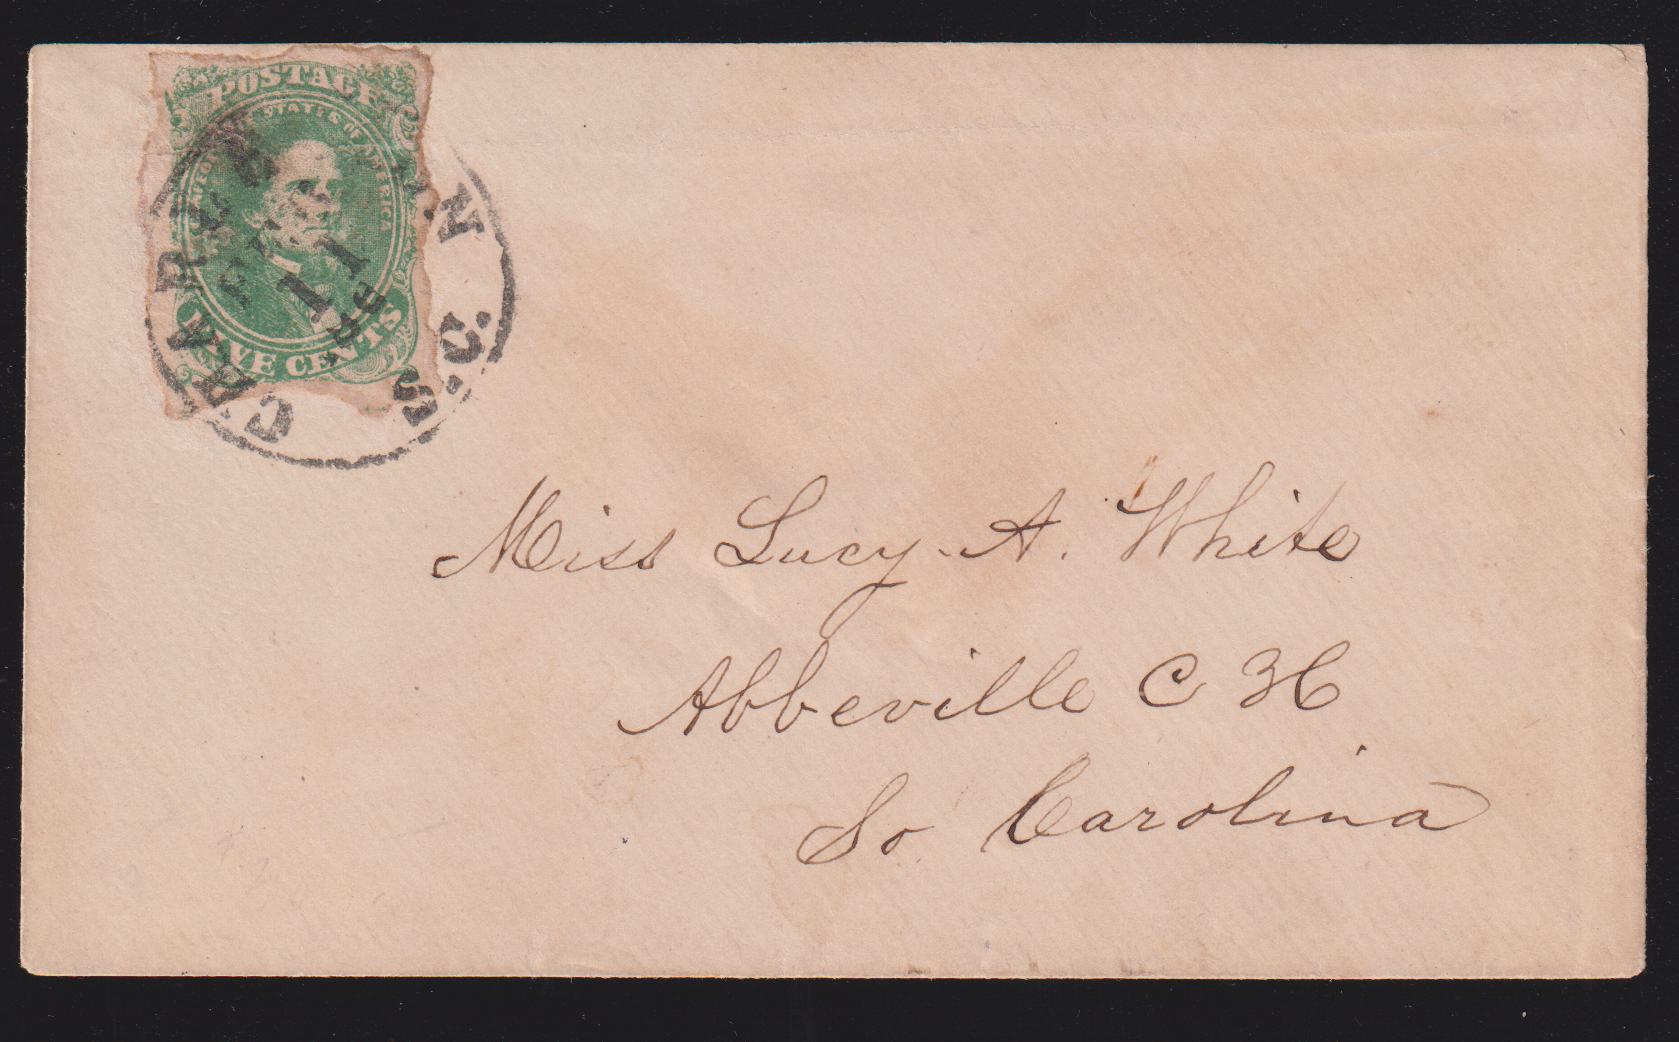 POSTAGE
CONFEDERATE STATES OF AMERICA
FIVE CENTS
CHARLESTON S.C.
11
Miss Lucy A. White
Abbeville C H
So Carolina